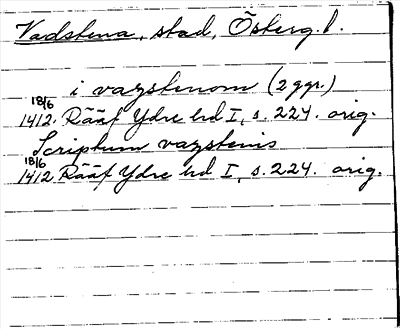 Vadstena, stad, Österg. l.
i vazstenom (2 ggr.)
18/6
1412. Rääf Ydre hd I, s. 224. orig.
Scriptum vazstenis
18/6
1412. Rääf Ydre hd I, s. 224. orig.